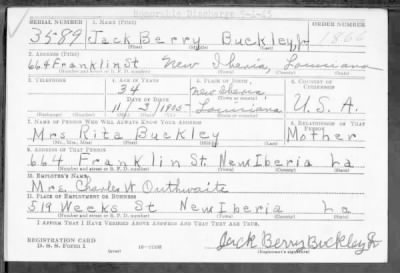 Honorable Discharge
SERIAL NUMBER 1. NAME (Print) ORDER NUMBER
3589 Jack Berry Buckley, Jr 1866
(First) (Middle) (Last)
2. ADDRESS (Print)
664 Franklin St New Iberia, Louisiana
(Number and street or R. F. D. number) (Town) (County) (State)
3. TELEPHONE 4. AGE IN YEARS 5. PLACE OF BIRTH 6. COUNTRY OF CITIZENSHIP
34 New Iberia
(Town or county)
DATE OF BIRTH
11/2/1905 Louisiana U.S.A.
(Exchange) (Number) (Mo.) (Day) (Yr.) (State or country)
7. NAME OF PERSON WHO WILL ALWAYS KNOW YOUR ADDRESS 8. RELATIONSHIP OF THAT PERSON
Mrs Rita Buckley Mother
(Mr., Mrs., Miss) (First) (Middle) (Last)
9. ADDRESS OF THAT PERSON
664 Franklin St. New Iberia La
(Number and street or R. F. D. number) (Town) (County) (State)
10. EMPLOYER'S NAME
Mrs. Charles W Outhwaite
11. PLACE OF EMPLOYMENT OR BUSINESS
519 Weeks St New Iberia La
(Number and street or R. F. D. number) (Town) (County) (State)
I AFFIRM THAT I HAVE VERIFIED ABOVE ANSWERS AND THAT THEY ARE TRUE.
REGISTRATION CARD
D. S. S. Form 1
Jack Berry Buckley Jr
(Registrant's signature)